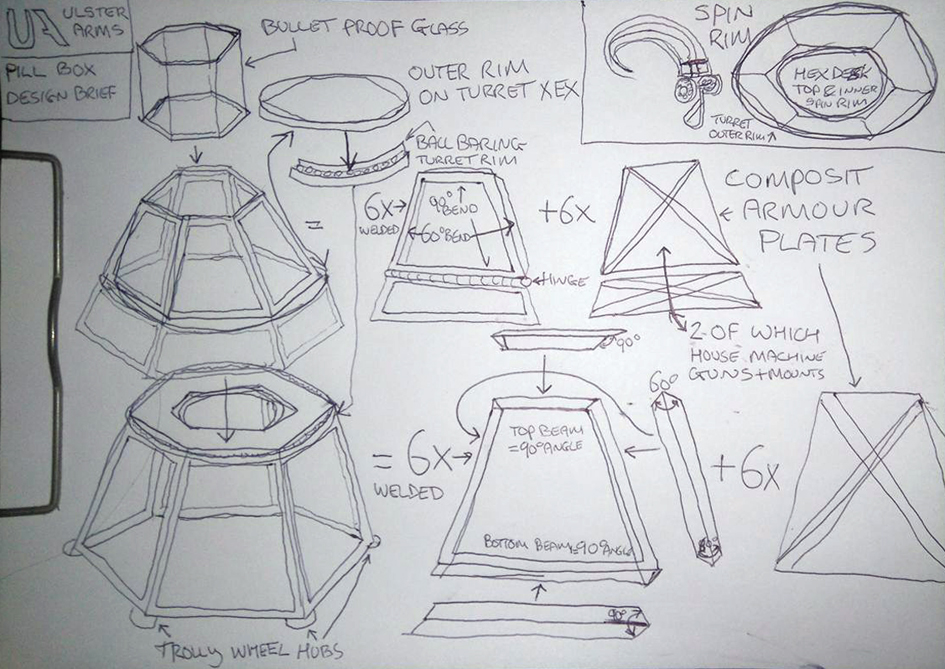 UA ULSTER
ARMS
PILL BOX
DESIGN BRIEF
BULLET PROOF GLASS
OUTER RIM
ON TURRET XEX
BALL BARING
TURRET RIM
SPIN
RIM
HEX DESK
TOP & INNER
SPIN RIM
TURRET
OUTER RIM
=
6X
WELDED
90° BEND
60° BEND
HINGE
+6X
COMPOSIT
ARMOUR
PLATES
2 OF WHICH
HOUSE MACHINE
GUNS + MOUNTS
90°
= 6X
WELDED
TOP BEAM
= 90° ANGLE
BOTTOM BEAM = 90° ANGLE
60°
90°
+6X
TROLLY WHEEL HUBS